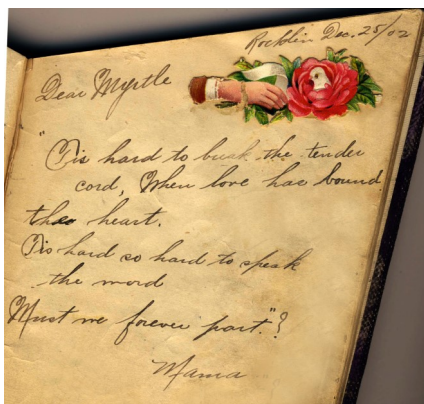 Rocklin Dec. 25/02
Dear Myrtle
"'Tis hard to break the tender
cord, When love has bound
the heart.
'Tis hard so hard to speak
the word
Must we forever part."?
Mama